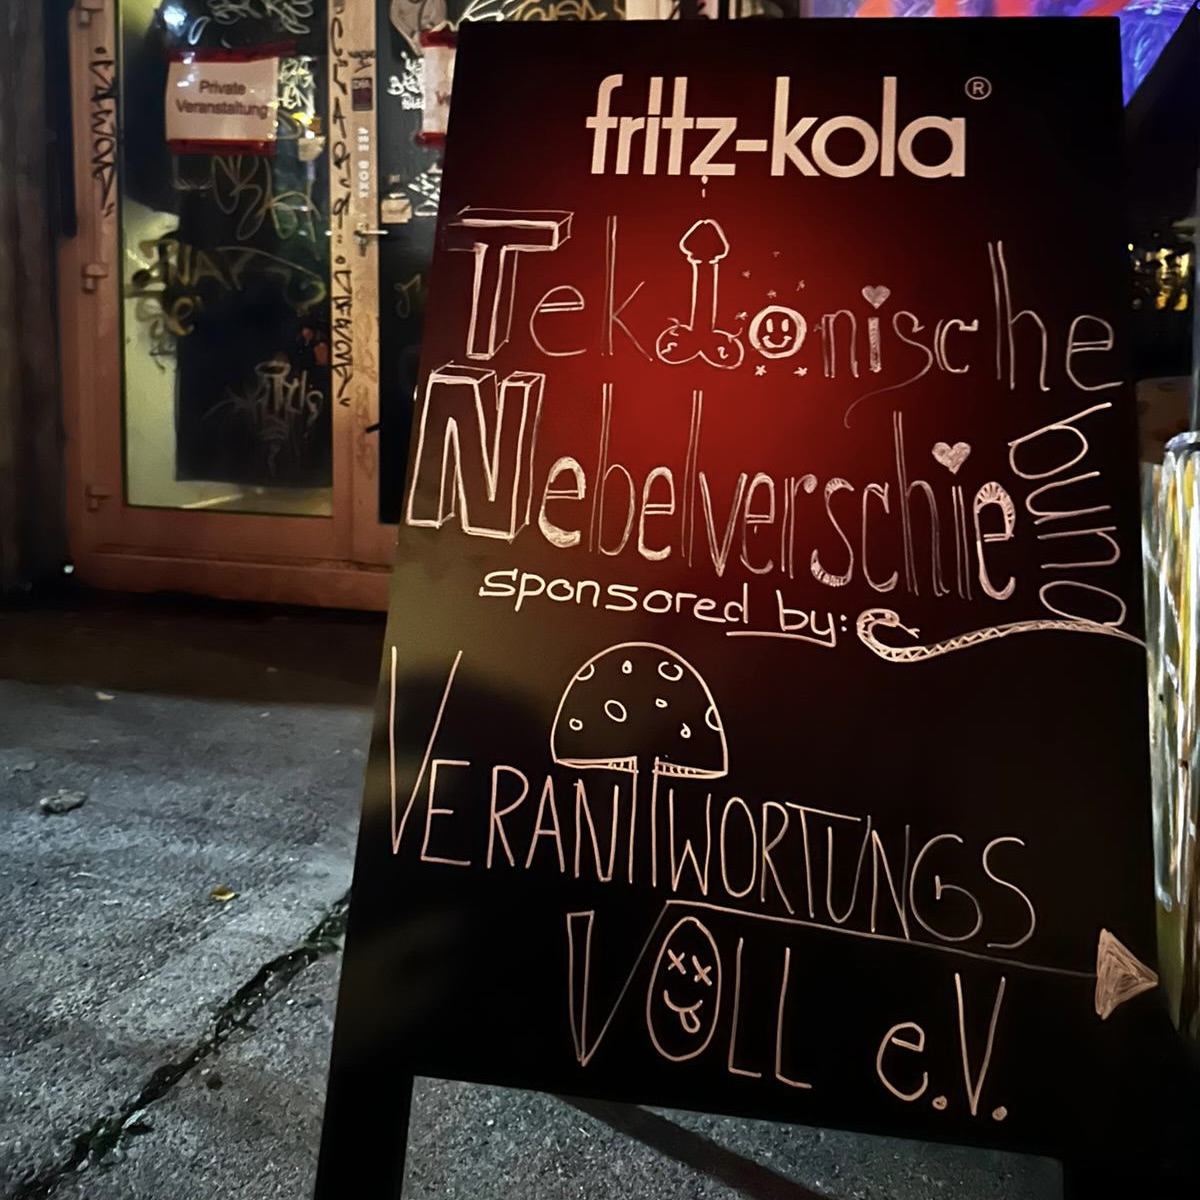 Private
Veranstaltung
fritz-kola®
Tektonische
Nebelverschiebung
sponsored by:
VERANTWORTUNGS
VOLL e.V.